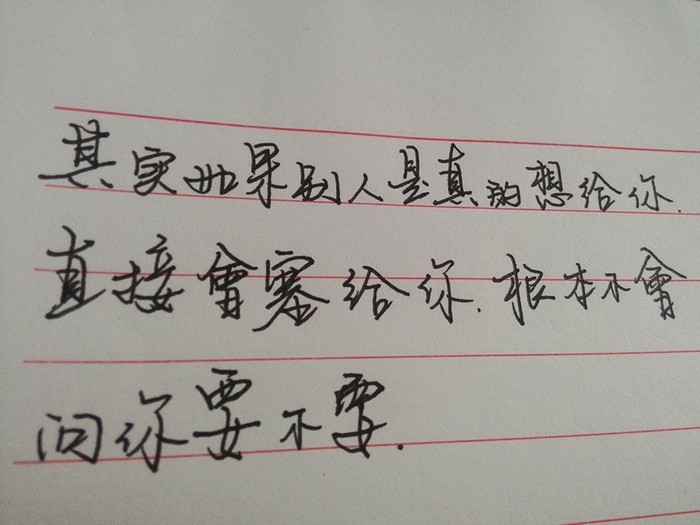 其实如果别人是真的想给你.
直接會塞给你.根本不會
问你要不要.